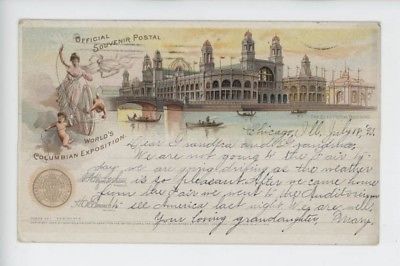 OFFICIAL
SOUVENIR POSTAL
WORLD'S
COLUMBIAN EXPOSITION
THE ELECTRICAL BUILDING
Chicago, Ill. July 18, '93
Dear Grandpa and Grandma,
We are not going to the Fair to-
day we are going driving as the weather
is so pleasant. After we came home
from the Fair we went to the Auditorium
to see America last night. We are well.
Your loving granddaughter, Mary.